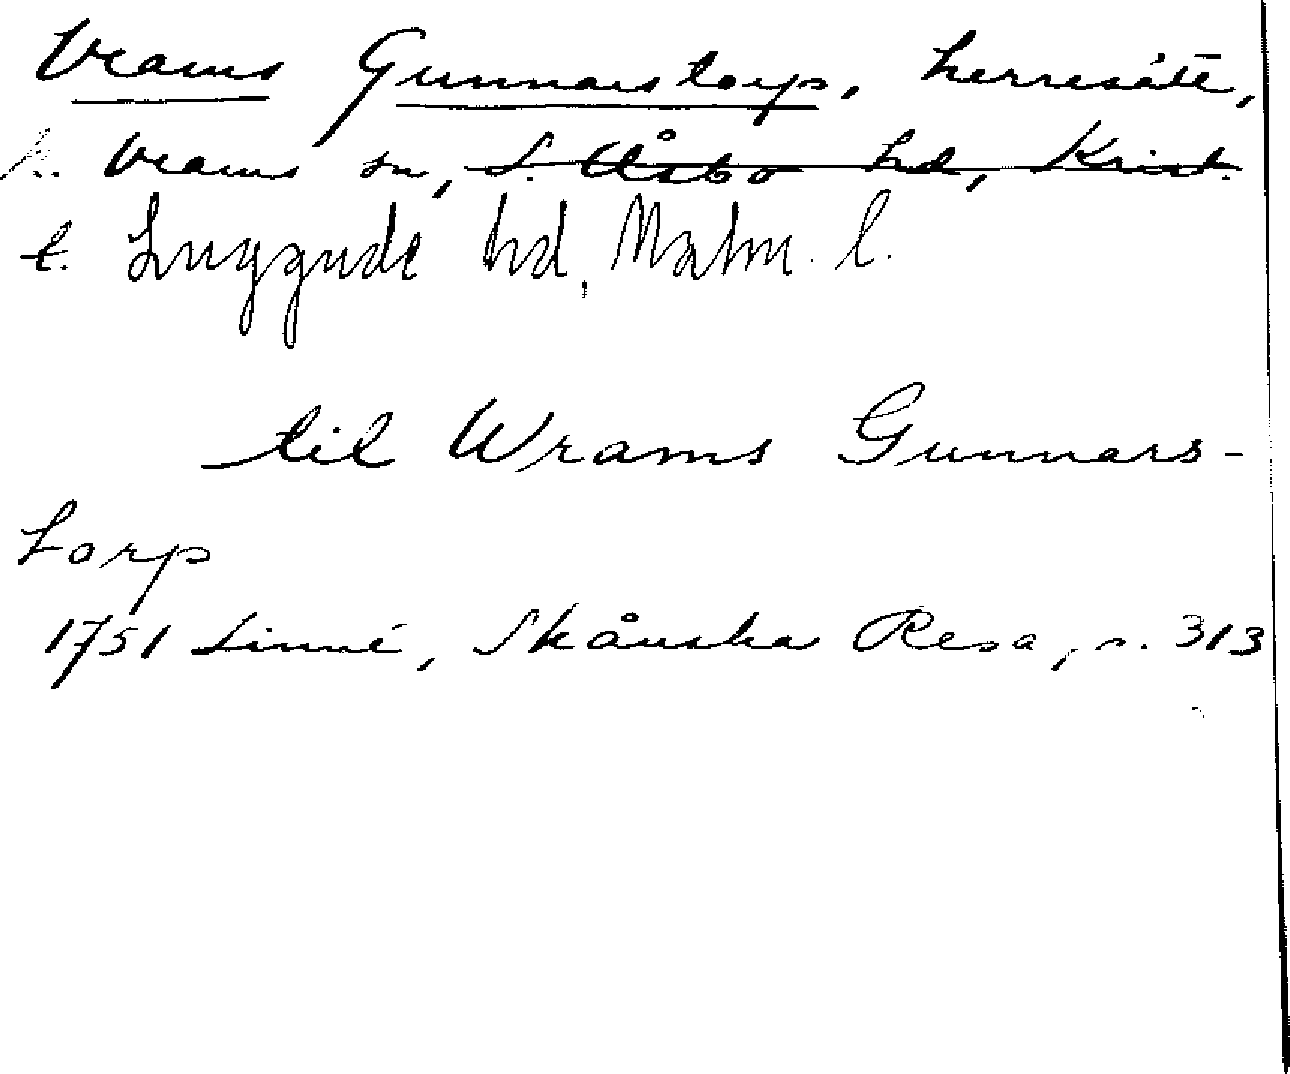 Vrams Gunnarstorp, herresäte,
N. Vrams sn, S. Åsbo hd, Krist.
l. Luggude hd, Malm. l.
til Wrams Gunnars-
torp
1751 Linné, Skånska Resa, s. 313